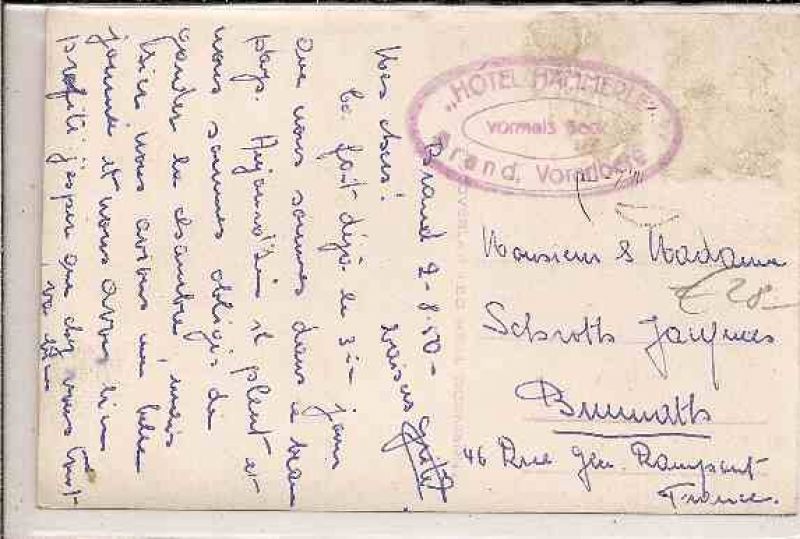 „HOTEL HÄMMERLE"
vormals Beck
Brand, Vorarlberg
Brand 2-8.50-
Mes chers!
Ça fait déjà le 3ie jour
que nous sommes dans ce beau
pays. Aujourd'hui il pleut et
nous sommes obligés de
garder la chambre, mais
hier nous avons eu belle
journée et nous avons bien
profité j'espère que chez vous tout
va bien
baisers
Monsieur & Madame
Schroth Jacques
Brumath
46 Rue Gen. Rampont
France.
€ 28-